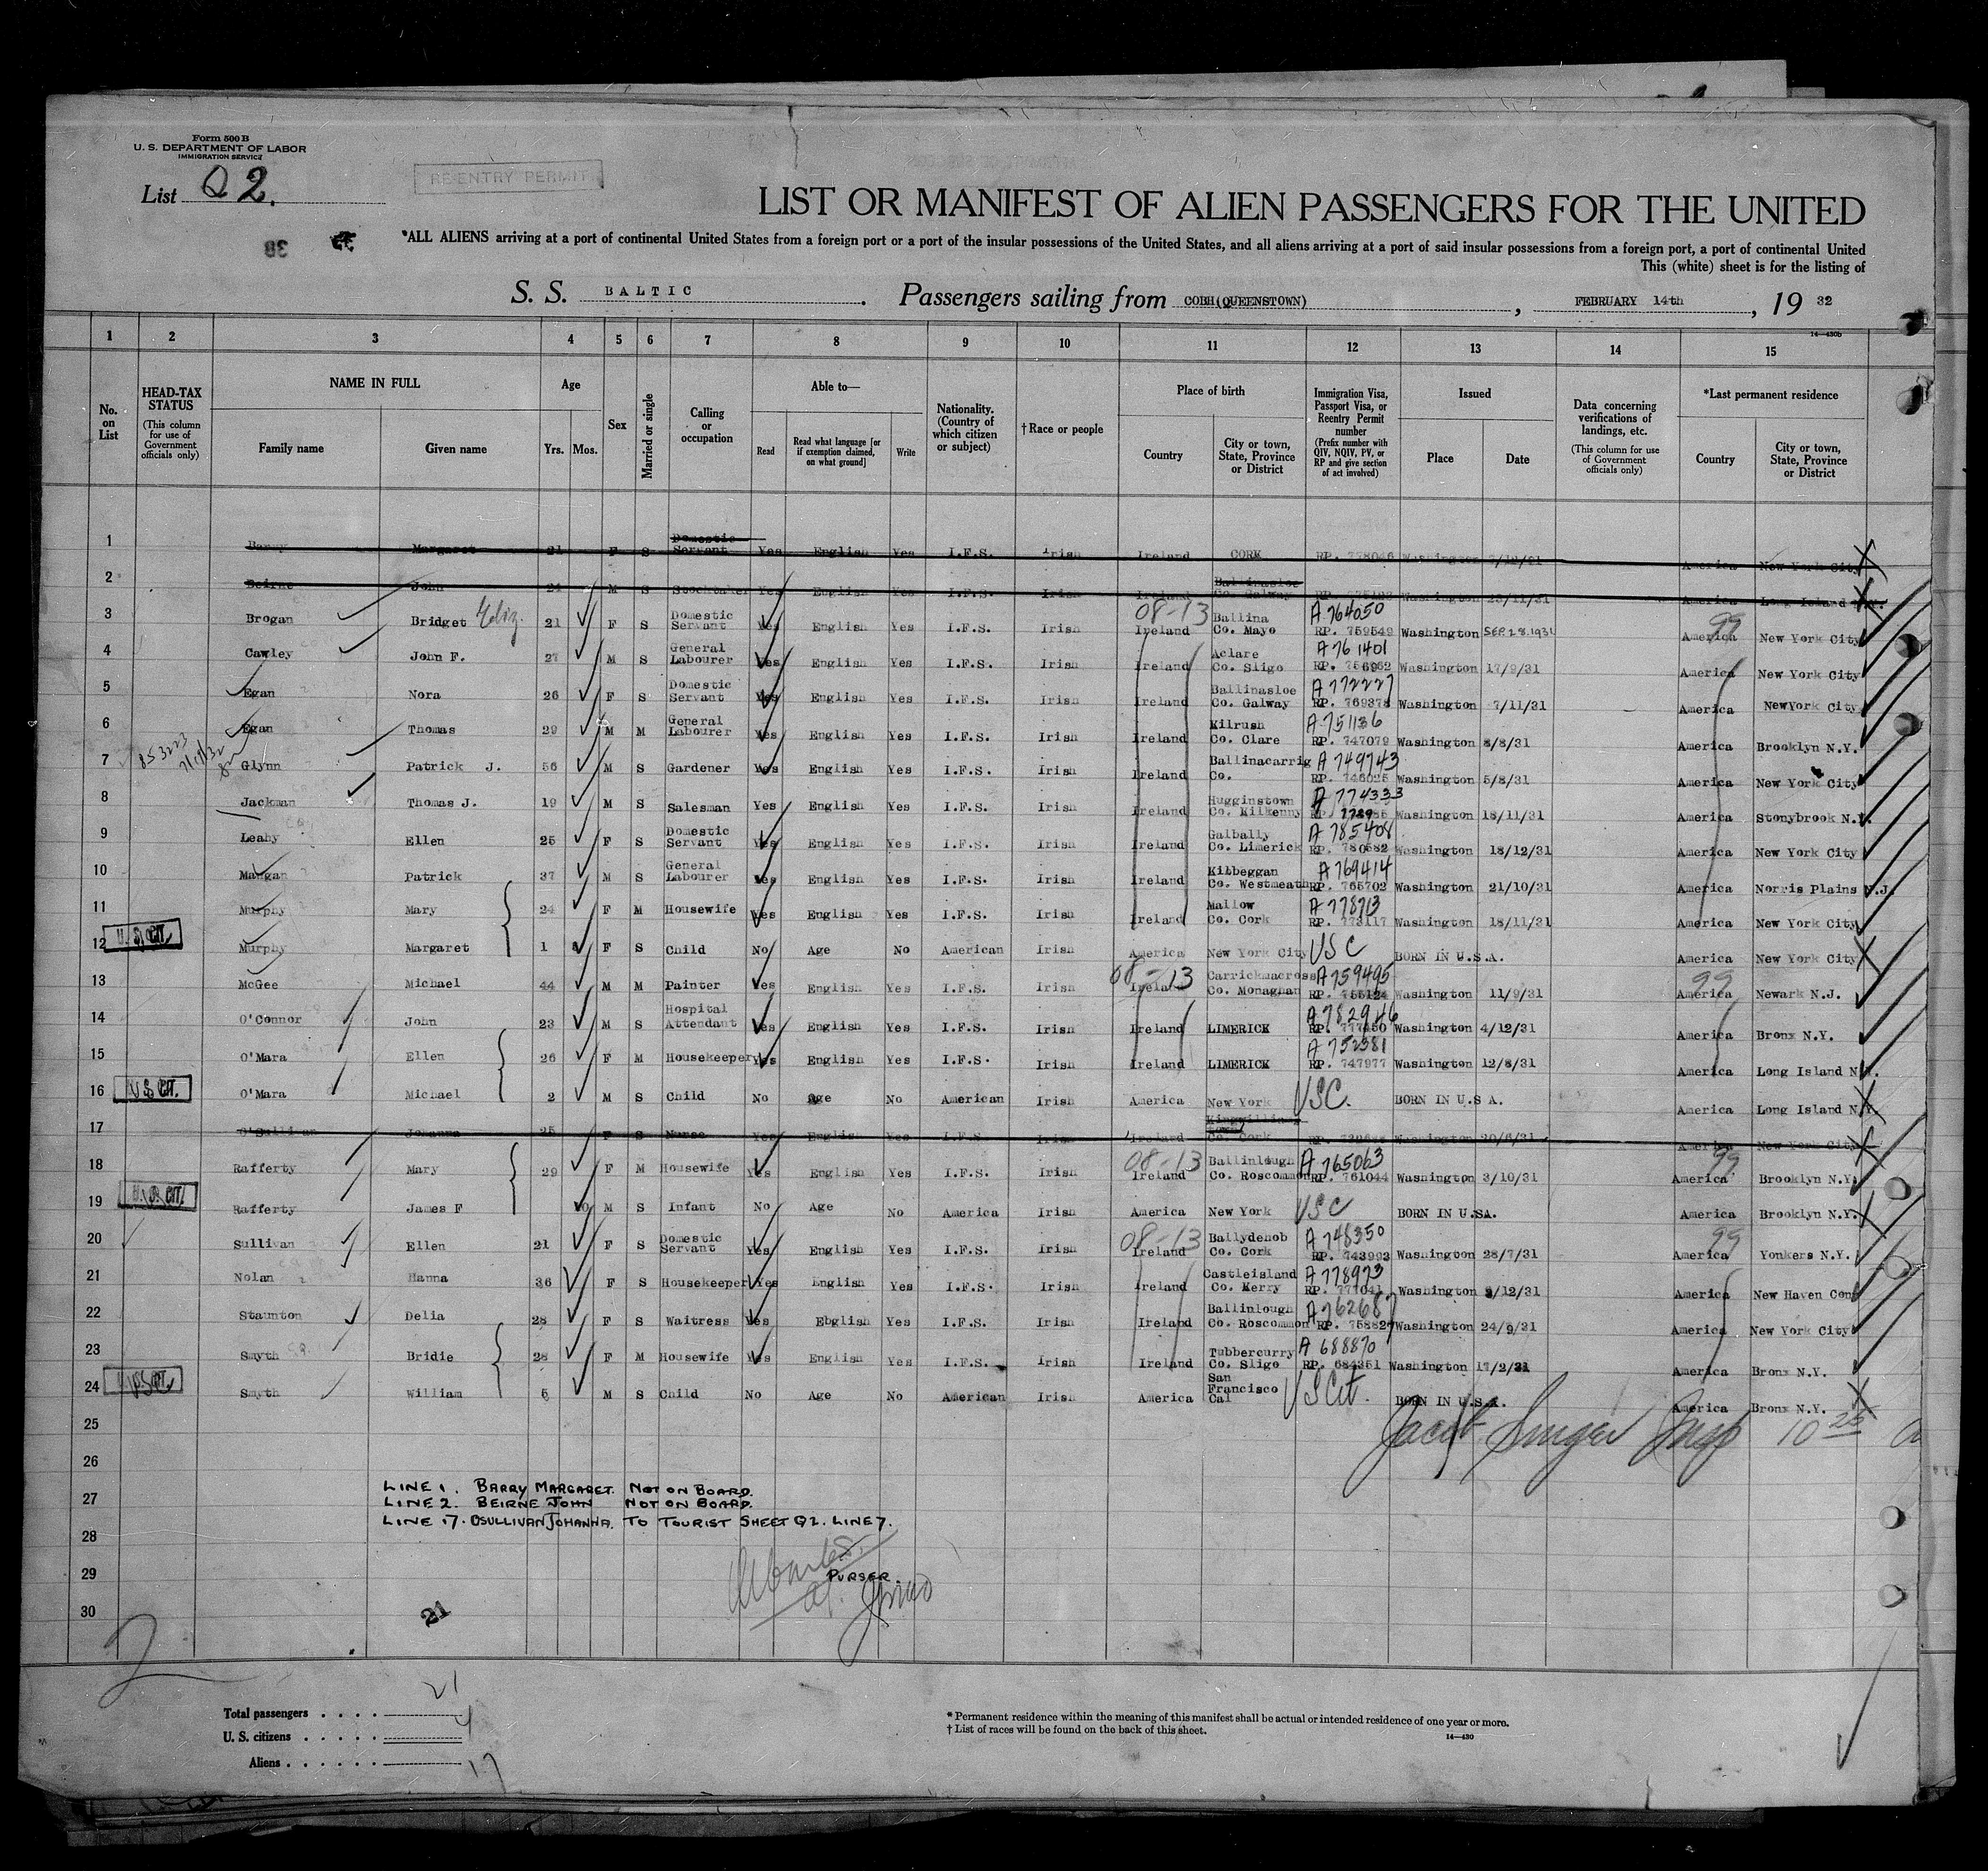 Form 500 B
U. S. DEPARTMENT OF LABOR
IMMIGRATION SERVICE
List Q 2.
RE-ENTRY PERMIT
38
LIST OR MANIFEST OF ALIEN PASSENGERS FOR THE UNITED
*ALL ALIENS arriving at a port of continental United States from a foreign port or a port of the insular possessions of the United States, and all aliens arriving at a port of said insular possessions from a foreign port, a port of continental United
This (white) sheet is for the listing of
S. S. BALTIC . Passengers sailing from COBH(QUEENSTOWN) , FEBRUARY 14th , 19 32
14—430b
1 2 3 4 5 6 7 8 9 10 11 12 13 14 15
No. on List
HEAD-TAX STATUS (This column for use of Government officials only)
NAME IN FULL Family name Given name
Age Yrs. Mos.
Sex
Married or single
Calling or occupation
Able to— Read Read what language [or if exemption claimed, on what ground] Write
Nationality. (Country of which citizen or subject)
†Race or people
Place of birth Country City or town, State, Province or District
Immigration Visa, Passport Visa, or Reentry Permit number (Prefix number with QIV, NQIV, PV, or RP and give section of act involved)
Issued Place Date
Data concerning verifications of landings, etc. (This column for use of Government officials only)
*Last permanent residence Country City or town, State, Province or District
1 Barry Margaret 21 F S Domestic Servant Yes English Yes I.F.S. Irish Ireland CORK RP. 778046 Washington America New York City
2 Beirne John 24 M S Yes English Yes I.F.S. Irish Ireland Ballinasloe Co. Galway Washington America Long Island
3 Brogan Bridget Eliz. 21 F S Domestic Servant Yes English Yes I.F.S. Irish 08-13 Ireland Ballina Co. Mayo A 764050 RP. 759549 Washington SEP 28 1931 99 America New York City
4 Cawley John F. 27 M S General Labourer Yes English Yes I.F.S. Irish Ireland Aclare Co. Sligo A 761401 RP. Washington 17/9/31 America New York City
5 Egan Nora 26 F S Domestic Servant Yes English Yes I.F.S. Irish Ireland Ballinasloe Co. Galway A 772227 RP. 769378 Washington 7/11/31 America NewYork City
6 Egan Thomas 29 M M General Labourer Yes English Yes I.F.S. Irish Ireland Kilrush Co. Clare A 751136 RP. 747079 Washington 8/8/31 America Brooklyn N.Y.
7 Glynn Patrick J. 56 M S Gardener Yes English Yes I.F.S. Irish Ireland Ballinacarrig Co. A 749743 RP. 746025 Washington 5/8/31 America New York City
8 Jackman Thomas J. 19 M S Salesman Yes English Yes I.F.S. Irish Ireland Hugginstown Co. Kilkenny A 774333 Washington 18/11/31 America Stonybrook N.Y.
9 Leahy Ellen 25 F S Domestic Servant Yes English Yes I.F.S. Irish Ireland Galbally Co. Limerick A 785408 RP. 780582 Washington 18/12/31 America New York City
10 Mangan Patrick 37 M S General Labourer Yes English Yes I.F.S. Irish Ireland Kilbeggan Co. Westmeath A 769414 RP. 765702 Washington 21/10/31 America Norris Plains N.J.
11 Murphy Mary 24 F M Housewife Yes English Yes I.F.S. Irish Ireland Mallow Co. Cork RP. 773117 Washington 18/11/31 America New York City
12 U.S. CIT. Murphy Margaret 1 F S Child No Age No American Irish America New York City USC BORN IN U.S.A. America New York City
13 McGee Michael 44 M M Painter Yes English Yes I.F.S. Irish 08-13 Ireland Carrickmacross Co. Monaghan A 759495 RP. 755124 Washington 11/9/31 99 America Newark N.J.
14 O'Connor John 23 M S Hospital Attendant Yes English Yes I.F.S. Irish Ireland LIMERICK A 782946 RP. 777450 Washington 4/12/31 America Bronx N.Y.
15 O'Mara Ellen 26 F M Housekeeper Yes English Yes I.F.S. Irish Ireland LIMERICK A 752381 RP. 747977 Washington 12/8/31 America Long Island N.Y.
16 U.S. CIT. O'Mara Michael 2 M S Child No Age No American Irish America New York USC. BORN IN U.S A. America Long Island N.Y.
17 O'Sullivan Johanna 25 F S Nurse Yes English Yes I.F.S. Irish Ireland Co. Cork Washington 20/6/31 America New York City
18 Rafferty Mary 29 F M Housewife Yes English Yes I.F.S. Irish 08-13 Ireland Ballinlough Co. Roscommon A 765063 RP. 761044 Washington 3/10/31 99 America Brooklyn N.Y.
19 U.S. CIT. Rafferty James F 10 M S Infant No Age No America Irish America New York USC BORN IN U.SA. America Brooklyn N.Y.
20 Sullivan Ellen 21 F S Domestic Servant Yes English Yes I.F.S. Irish 08-13 Ireland Ballydehob Co. Cork A 748350 RP. 743993 Washington 28/7/31 99 America Yonkers N.Y.
21 Nolan Hanna 36 F S Housekeeper Yes English Yes I.F.S. Irish Ireland Castleisland Co. Kerry A 778973 RP. 777041 Washington /12/31 America New Haven Con
22 Staunton Delia 28 F S Waitress Yes Ebglish Yes I.F.S. Irish Ireland Ballinlough Co. Roscommon A 762687 RP. 75882 Washington 24/9/31 America New York City
23 Smyth Bridie 28 F M Housewife Yes English Yes I.F.S. Irish Ireland Tubbercurry Co. Sligo A 688870 RP. 684351 Washington 17/2/31 America Bronx N.Y.
24 Smyth William 5 M S Child No Age No American Irish America San Francisco Cal US Cit. BORN IN U.S.A. America Bronx N.Y.
25 Jacob Singer Insp 10 25 a
26
27 LINE 1. BARRY MARGARET. NOT ON BOARD.
LINE 2. BEIRNE JOHN NOT ON BOARD.
28 LINE 17. OSULLIVAN JOHANNA. TO TOURIST SHEET Q2. LINE 7.
29 PURSER.
30
21
2
Total passengers . . . . 21
U. S. citizens . . . . . 4
Aliens . . . . . . 17
* Permanent residence within the meaning of this manifest shall be actual or intended residence of one year or more.
† List of races will be found on the back of this sheet.
14—430